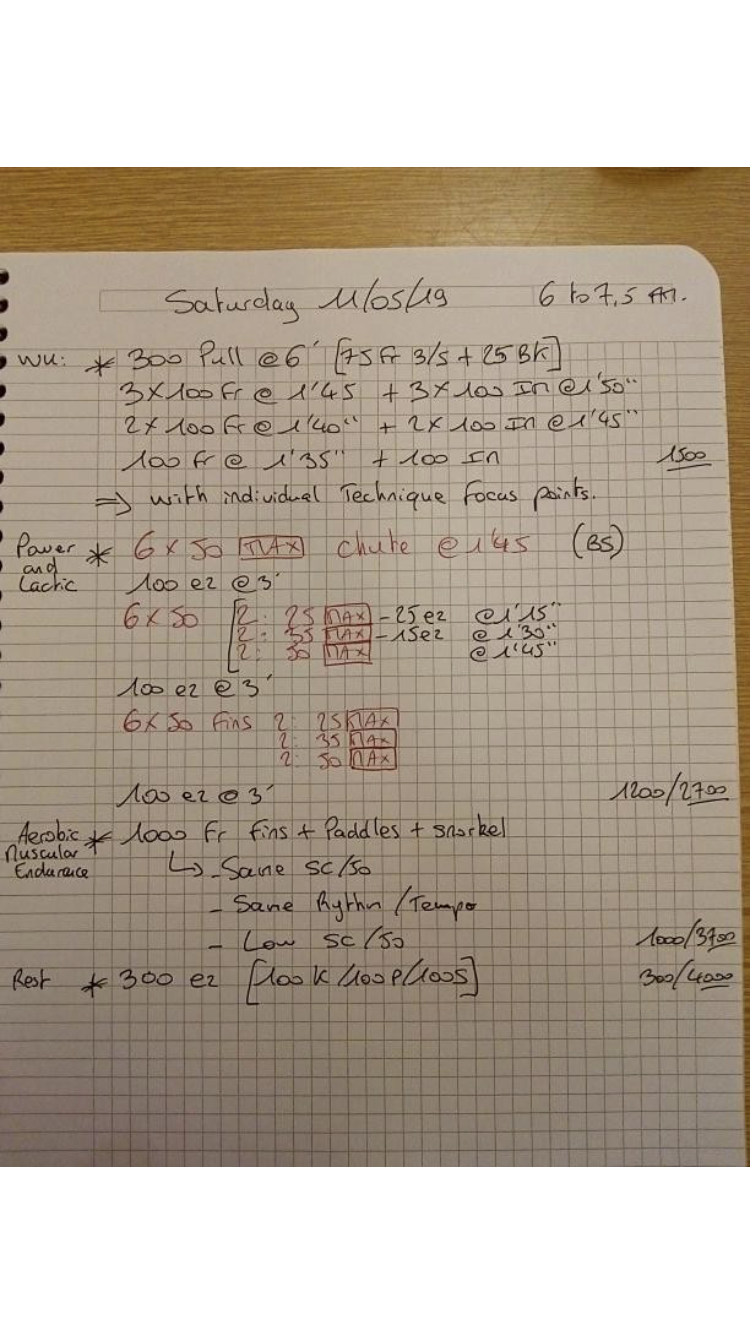 Saturday 11/05/19 6 to 7,5 AM.
WU: * 300 Pull @ 6' [75 Fr 3/5 + 25 BK]
3x100 Fr @ 1'45 + 3x100 IM @ 1'50"
2x100 Fr @ 1'40" + 2x100 IM @ 1'45"
100 Fr @ 1'35" + 100 IM 1500
⇒ with individual Technique focus points.
Power and Lactic * 6x50 MAX chute @ 1'45 (BS)
100 ez @ 3'
6x50 [2: 25 MAX - 25 ez @ 1'15"
2: 35 MAX - 15 ez @ 1'30"
2: 50 MAX @ 1'45"
100 ez @ 3'
6x50 fins 2: 25 MAX
2: 35 MAX
2: 50 MAX
100 ez @ 3' 1200/2700
Aerobic Muscular Endurance * 1000 Fr fins + Paddles + snorkel
↳ - Same SC/50
- Same Rythm / Tempo
- Low SC/50 1000/3700
Rest * 300 ez [100K/100P/100S] 300/4000